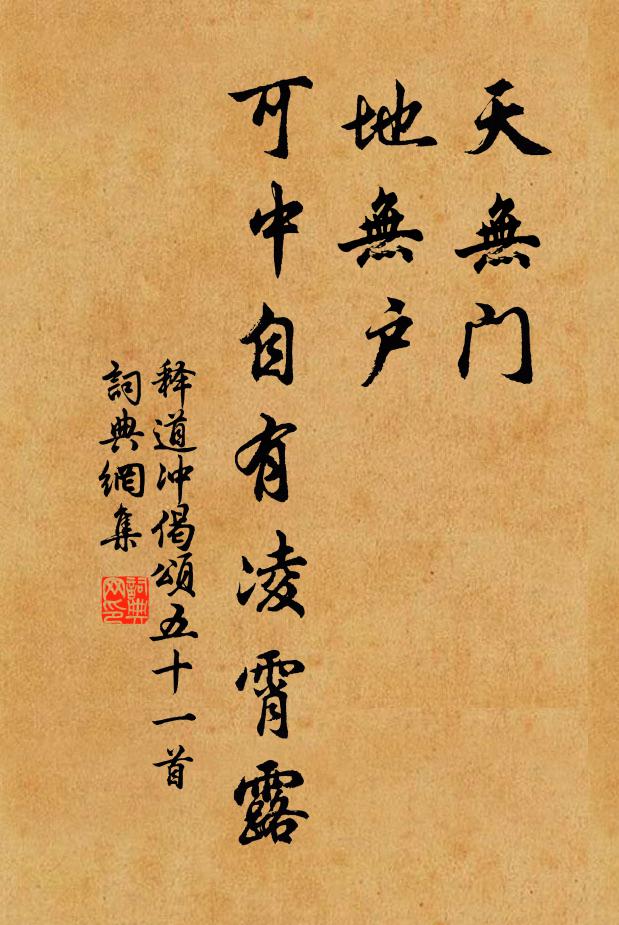 天無门
地無户
可中自有凌霄露
释道冲偈頌五十一首
詞典網集
詞典
网印